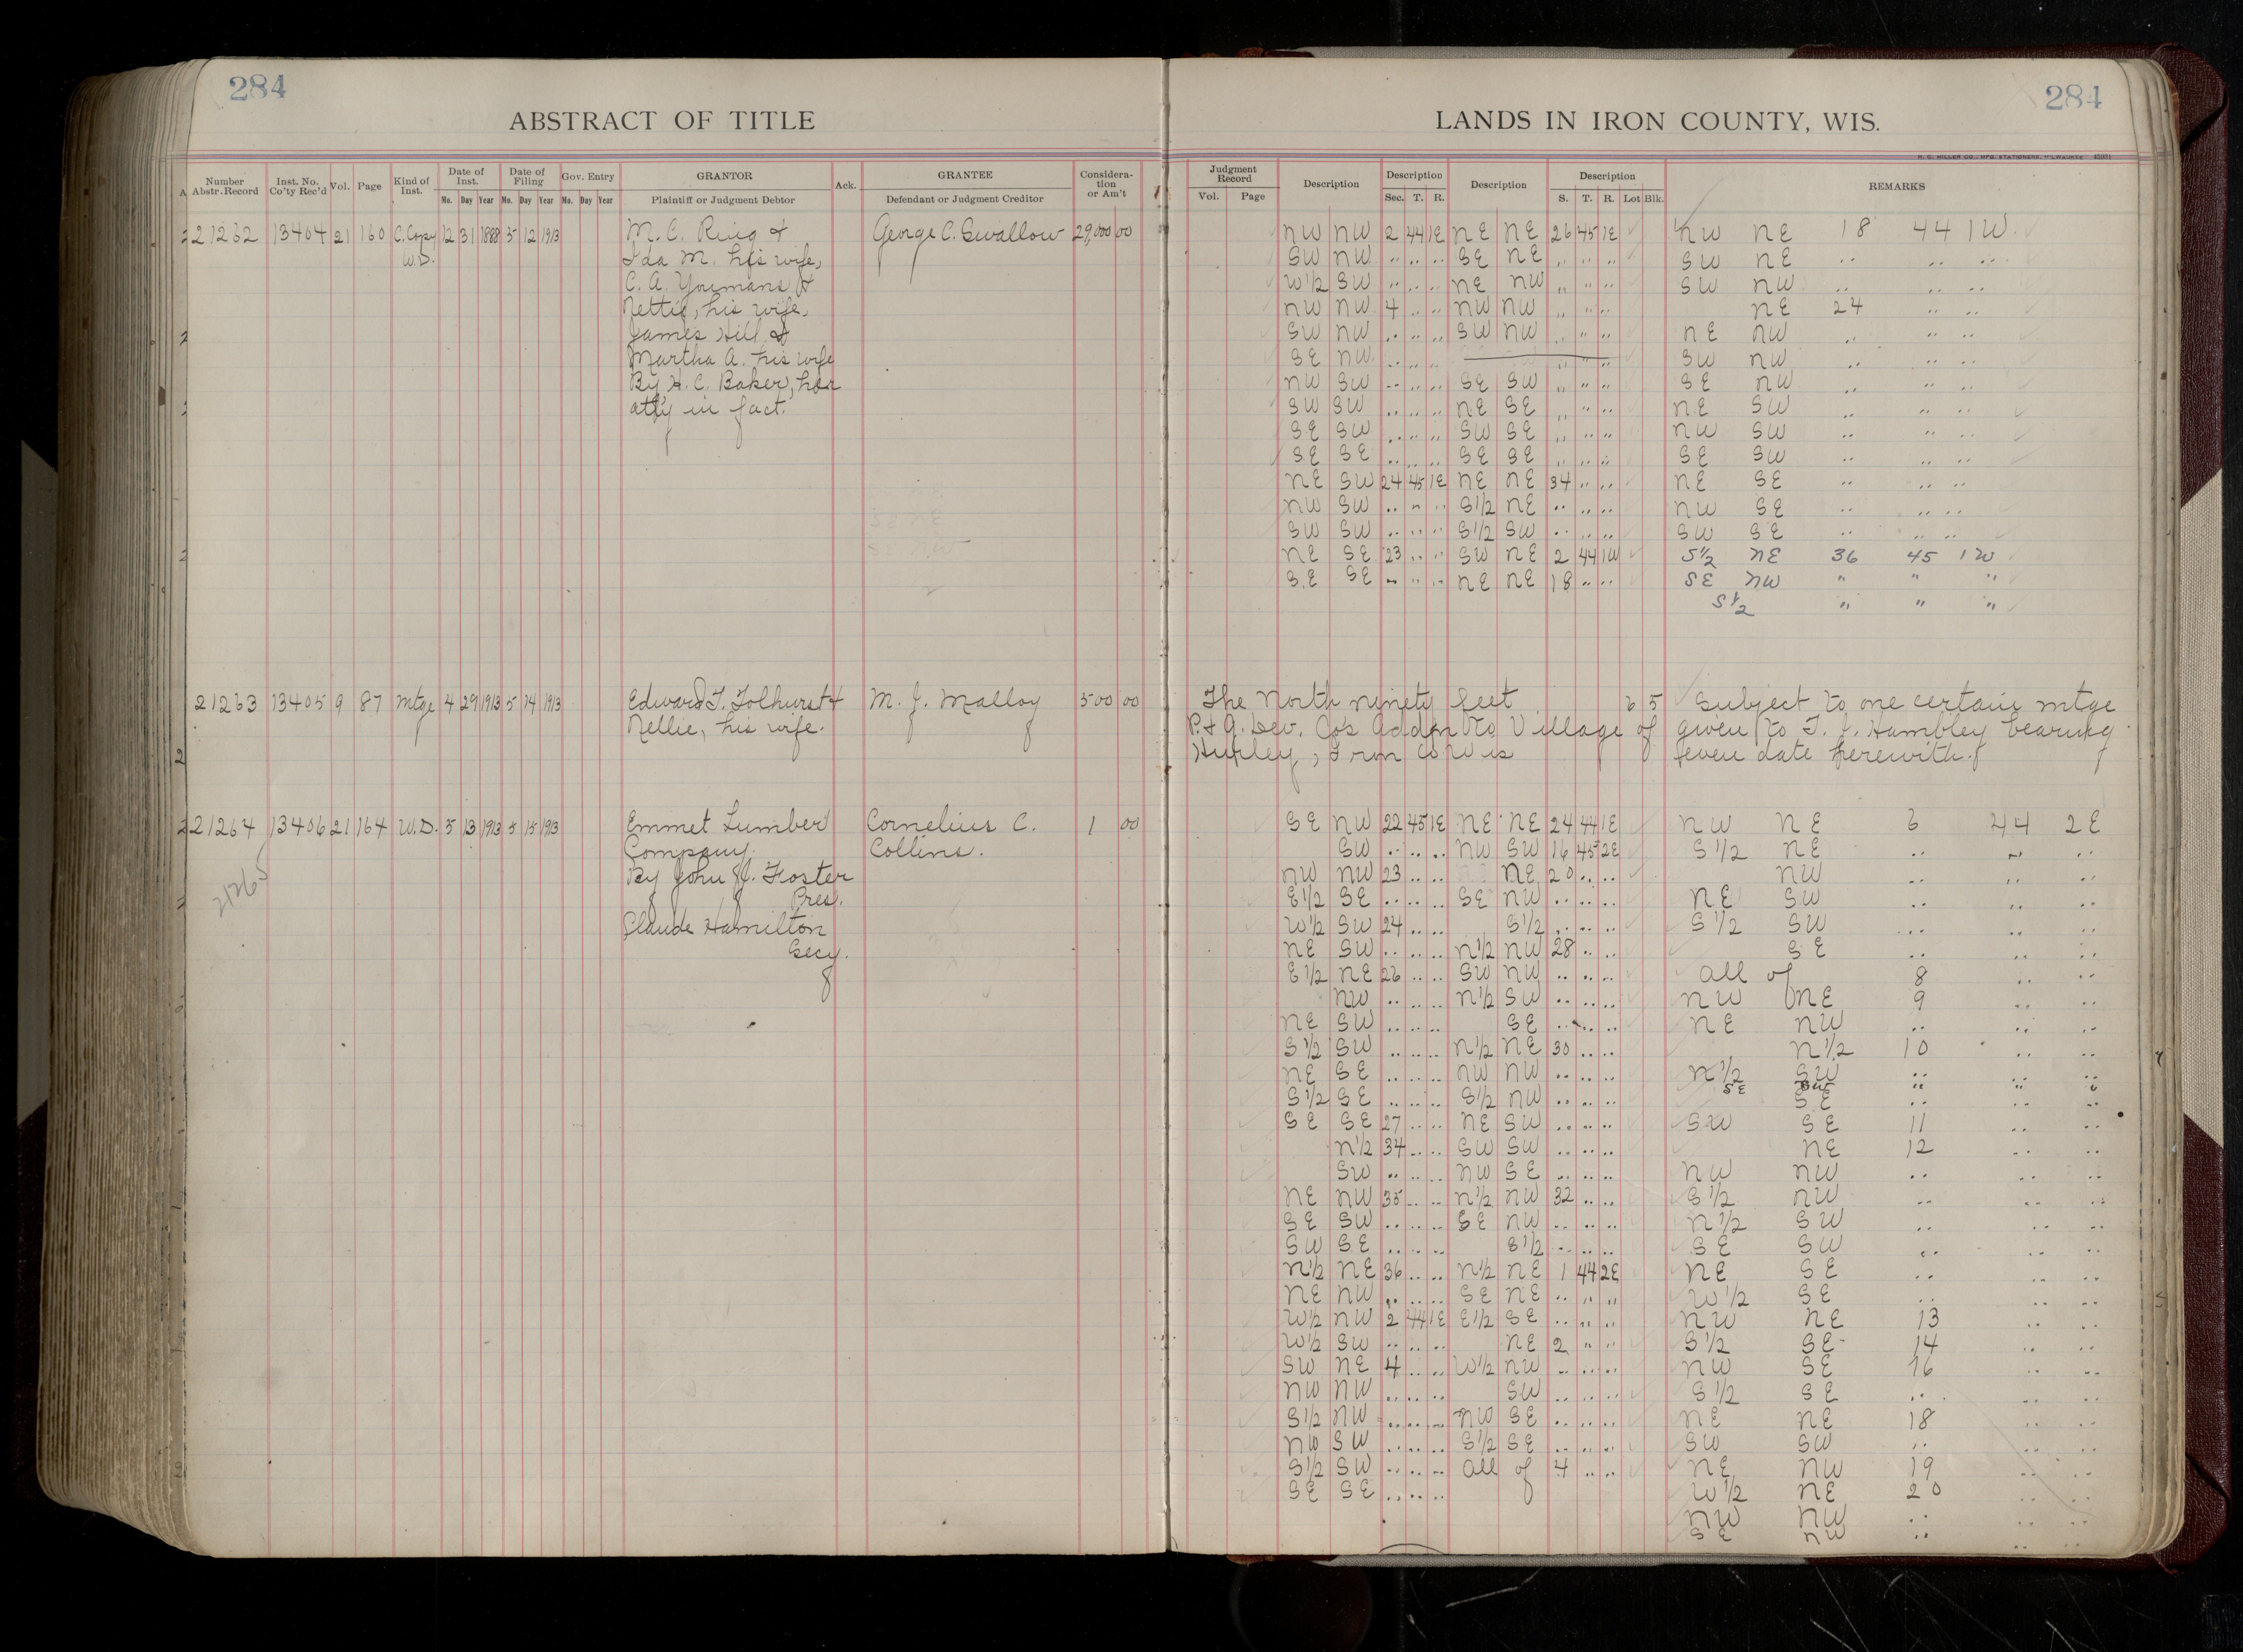 284
ABSTRACT OF TITLE
Number Abstr. Record Inst. No. Co'ty Rec'd Vol. Page Kind of Inst. Date of Inst. Mo. Day Year Date of Filing Mo. Day Year Gov. Entry Mo. Day Year GRANTOR Plaintiff or Judgment Debtor Ack. GRANTEE Defendant or Judgment Creditor Consideration or Am't
21262 13404 21 160 C. Copy 12 31 1888 5 12 1913 M. C. Ring & George C. Swallow 29,000 00
W.D. Ida M. his wife,
C. A. Youmans &
Nettie, his wife,
James Hill &
Martha A. his wife
By H. C. Baker, her
atty in fact.
21263 13405 9 87 Mtge 4 29 1913 5 14 1913 Edward T. Tolhurst & M. J. Malloy 500 00
Nellie, his wife.
21264 13406 21 164 W.D. 5 13 1913 5 15 1913 Emmet Lumber Cornelius C. 1 00
Company. Collins.
21265
By John J. Foster
Pres.
Claude Hamilton
Secy.
284
LANDS IN IRON COUNTY, WIS.
H. C. MILLER CO., MFG. STATIONERS, MILWAUKEE
Judgment Record Vol. Page Description Description Sec. T. R. Description Description S. T. R. Lot Blk. REMARKS
NW NW 2 44 1E NE NE 26 45 1E NW NE 18 44 1W
SW NW .. .. .. SE NE .. .. .. SW NE .. .. ..
W1/2 SW .. .. .. NE NW .. .. .. SW NW .. .. ..
NW NW 4 .. .. NW NW .. .. .. NE 24 .. ..
SW NW .. .. .. SW NW .. .. .. NE NW .. .. ..
SE NW .. .. .. .. .. .. SW NW .. .. ..
NW SW .. .. .. SE SW .. .. .. SE NW .. .. ..
SW SW .. .. .. NE SE .. .. .. NE SW .. .. ..
SE SW .. .. .. SW SE .. .. .. NW SW .. .. ..
SE SE .. .. .. SE SE .. .. .. SE SW .. .. ..
NE SW 24 45 1E NE NE 34 .. .. NE SE .. .. ..
NW SW .. .. .. S1/2 NE .. .. .. NW SE .. .. ..
SW SW .. .. .. S1/2 SW .. .. .. SW SE .. .. ..
NE SE 23 .. .. SW NE 2 44 1W S1/2 NE 36 45 1W
SE SE .. .. .. NE NE 18 .. .. SE NW " " "
S1/2 " " "
The North ninety feet 6 5 Subject to one certain mtge
P. & G. Dev. Co's Addn to Village of given to T. J. Hambley bearing
Hurley, Iron Co Wis even date herewith.
SE NW 22 45 1E NE NE 24 44 1E NW NE 6 44 2E
SW .. .. .. NW SW 16 45 2E S1/2 NE .. .. ..
NW NW 23 .. .. NE 20 .. .. NW .. .. ..
E1/2 SE .. .. .. SE NW .. .. .. NE SW .. .. ..
W1/2 SW 24 .. .. S1/2 .. .. .. S1/2 SW .. .. ..
NE SW .. .. .. N1/2 NW 28 .. .. SE .. .. ..
E1/2 NE 26 .. .. SW NW .. .. .. All of 8 .. ..
NW .. .. .. N1/2 SW .. .. .. NW NE 9 .. ..
NE SW .. .. .. SE .. .. .. NE NW .. .. ..
S1/2 SW .. .. .. N1/2 NE 30 .. .. N1/2 10 .. ..
NE SE .. .. .. NW NW .. .. .. N1/2 SW .. .. ..
SE SW " " "
S1/2 SE .. .. .. S1/2 NW .. .. .. SE .. .. ..
SE SE 27 .. .. NE SW .. .. .. SW SE 11 .. ..
N1/2 34 .. .. SW SW .. .. .. NE 12 .. ..
SW .. .. .. NW SE .. .. .. NW NW .. .. ..
NE NW 35 .. .. N1/2 NW 32 .. .. S1/2 NW .. .. ..
SE SW .. .. .. SE NW .. .. .. N1/2 SW .. .. ..
SW SE .. .. .. S1/2 .. .. .. SE SW .. .. ..
N1/2 NE 36 .. .. N1/2 NE 1 44 2E NE SE .. .. ..
NE NW .. .. .. SE NE .. .. .. W1/2 SE .. .. ..
W1/2 NW 2 44 1E E1/2 SE .. .. .. NW NE 13 .. ..
W1/2 SW .. .. .. NE 2 .. .. S1/2 SE 14 .. ..
SW NE 4 .. .. W1/2 NW .. .. .. NW SE 16 .. ..
NW NW .. .. .. SW .. .. .. S1/2 SE .. .. ..
S1/2 NW .. .. .. NW SE .. .. .. NE NE 18 .. ..
NW SW .. .. .. S1/2 SE .. .. .. SW SW .. .. ..
S1/2 SW .. .. .. All of 4 .. .. NE NW 19 .. ..
SE SE .. .. .. W1/2 NE 20 .. ..
NW NW .. .. ..
SE NW .. .. ..